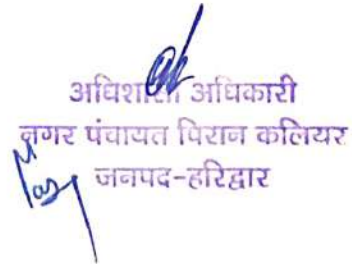 अधिशासी अधिकारी
नगर पंचायत पिरान कलियर
जनपद-हरिद्वार